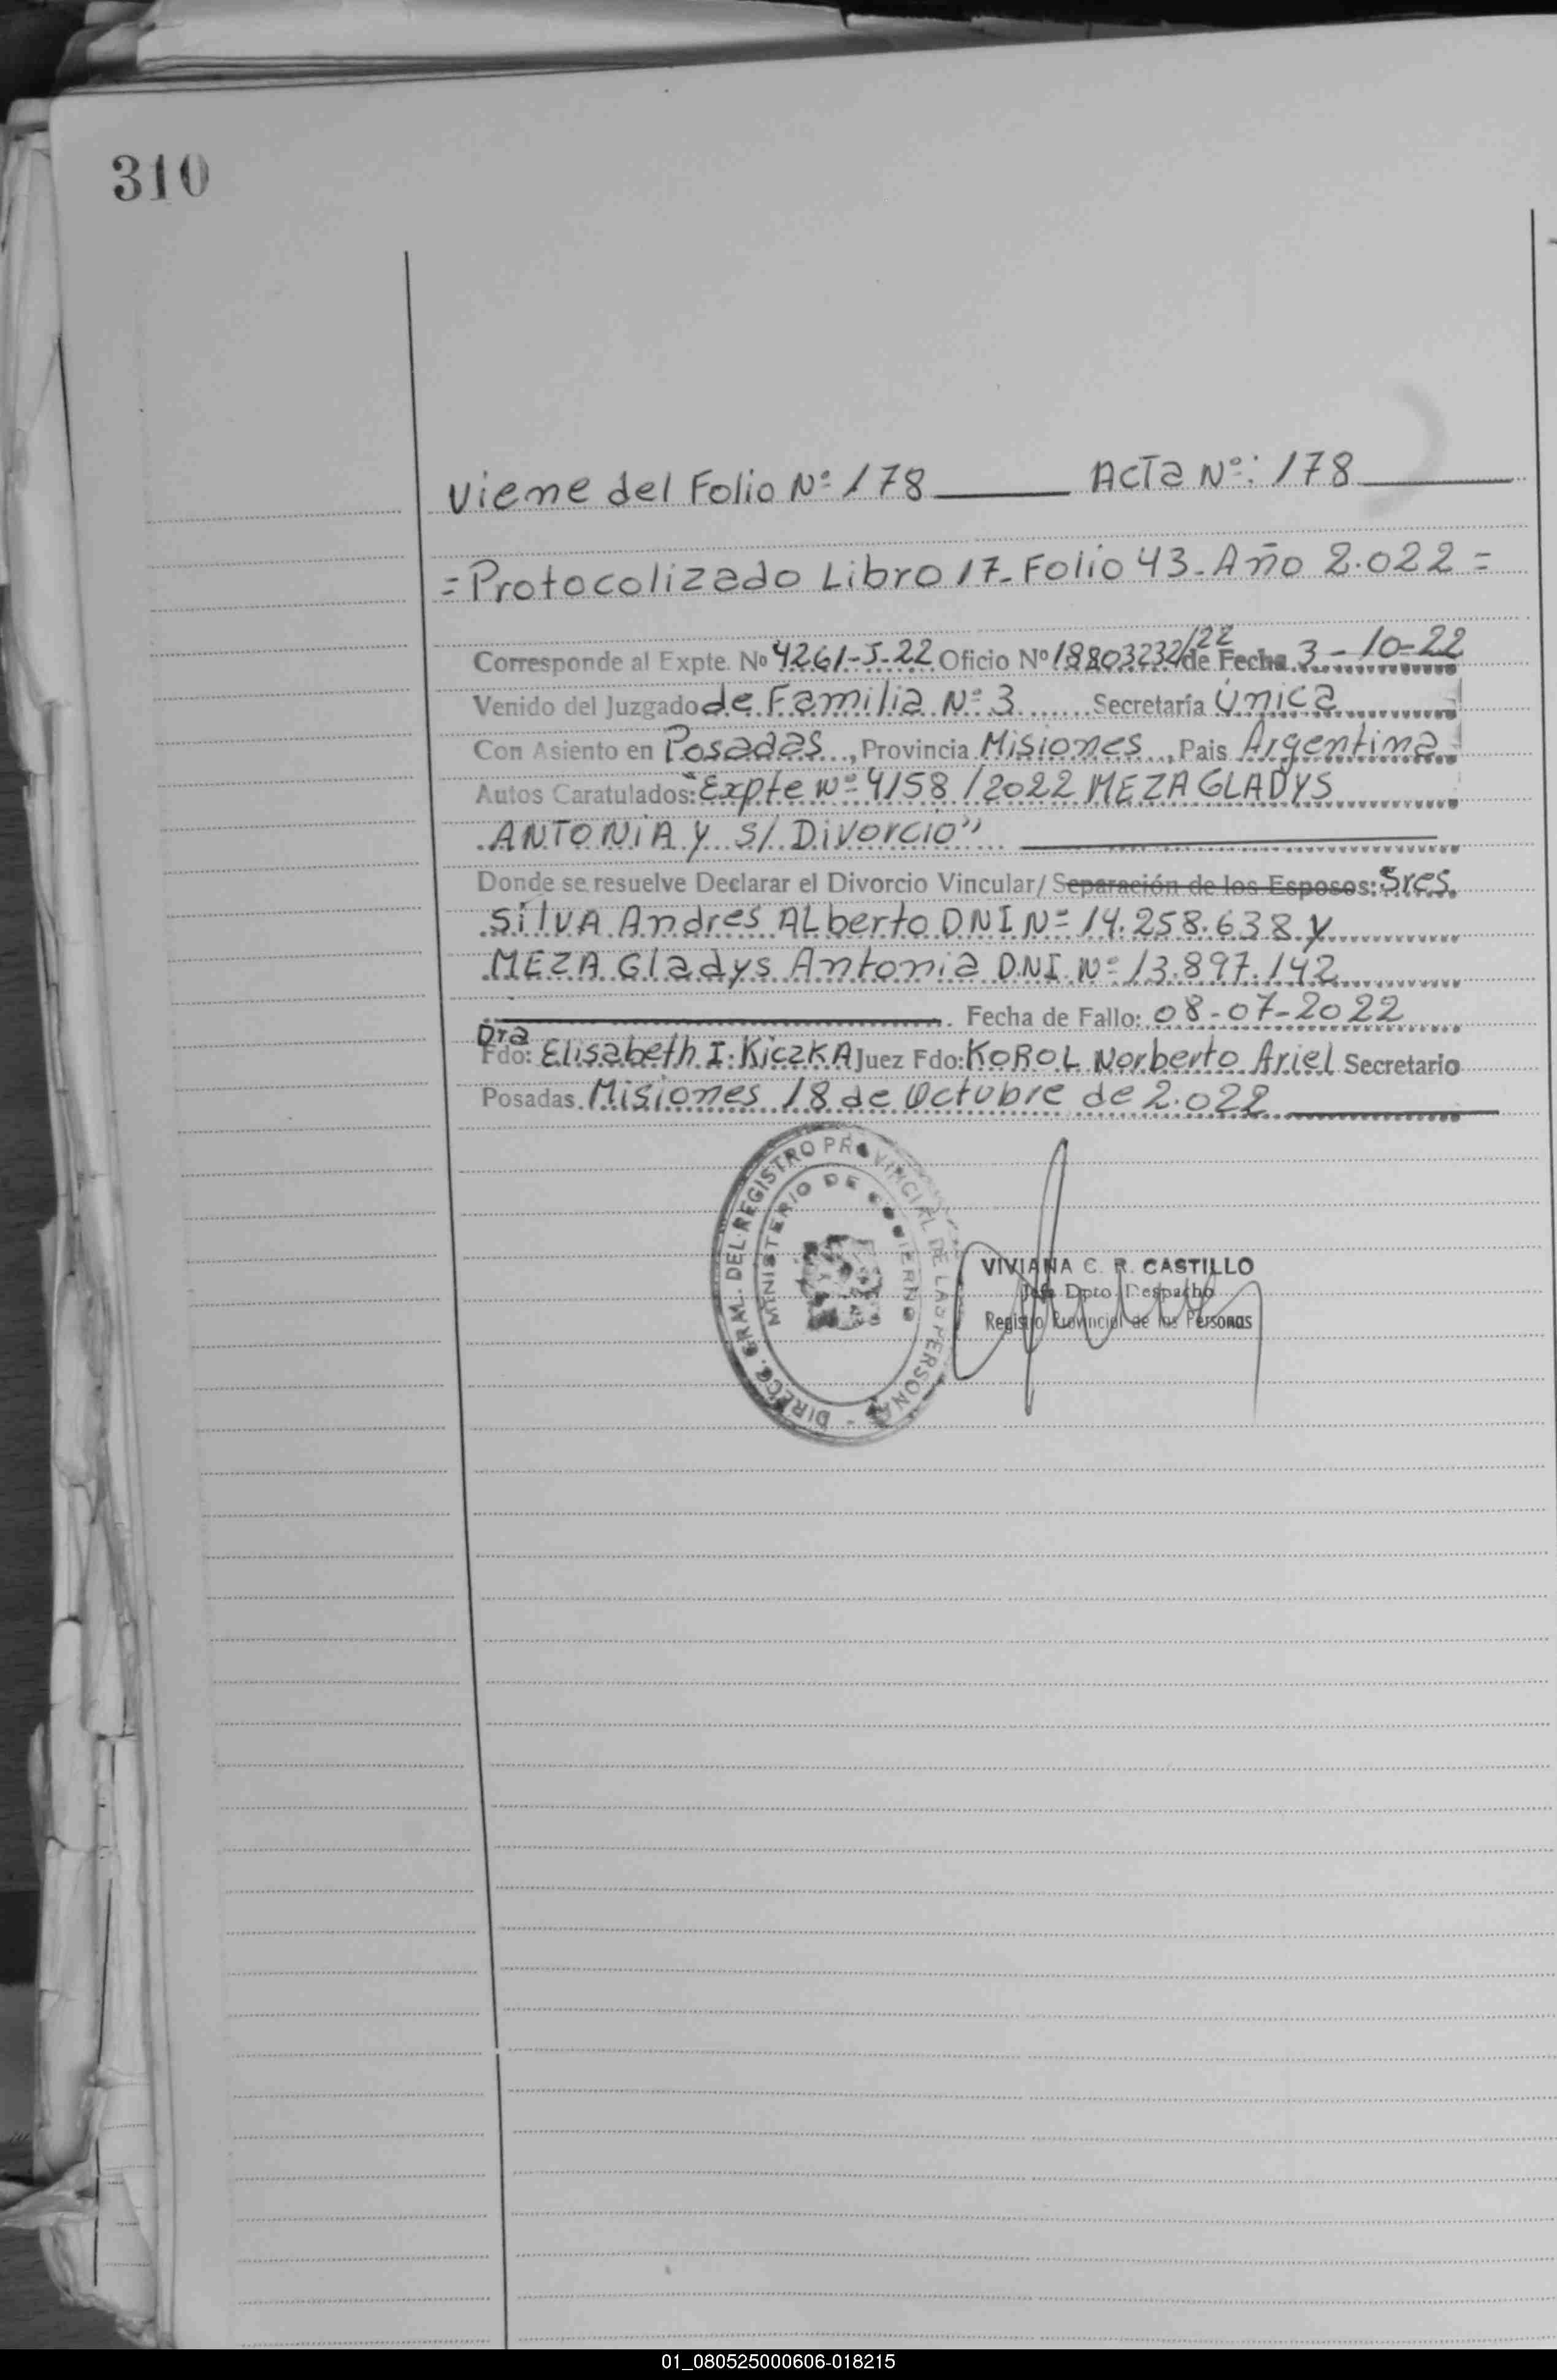 310
Viene del Folio Nº 178 Acta Nº: 178
= Protocolizado Libro 17- Folio 43- Año 2.022 =
Corresponde al Expte. Nº 4261-J-22 Oficio Nº 18803232/22 de Fecha 3-10-22
Venido del Juzgado de Familia Nº 3 Secretaría Única
Con Asiento en Posadas, Provincia Misiones, Pais Argentina
Autos Caratulados: "Expte Nº 4158/2022 MEZA GLADYS
ANTONIA Y S/ Divorcio"
Donde se resuelve Declarar el Divorcio Vincular/ Separación de los Esposos: Sres.
SILVA Andres ALberto DNI Nº 14.258.638 y
MEZA Gladys Antonia D.N.I. Nº 13.897.142
. Fecha de Fallo: 08-07-2022
Dra
Fdo: Elisabeth I. KiczKA Juez Fdo: KOROL Norberto Ariel Secretario
Posadas. Misiones 18 de Octubre de 2.022
DIRECC. GRAL. DEL REGISTRO PROVINCIAL DE LAS PERSONAS -
MINISTERIO DE GOBIERNO
VIVIANA C. R. CASTILLO
Jefa Dpto. Despacho
Registro Provincial de las Personas
01_080525000606-018215